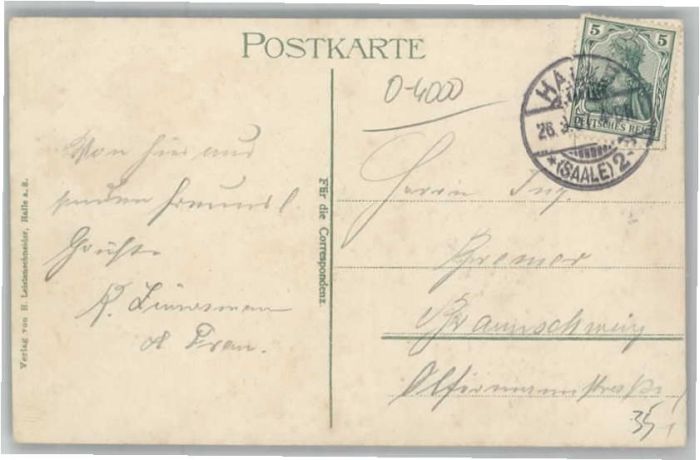 POSTKARTE
0-4000
5 5
DEUTSCHES REICH
HALLE
26.3.
*(SAALE) 2*
Von hier aus
senden freundl.
Grüße
K.
& Frau.
Verlag von H. Leistenschneider, Halle a. S.
Für die Correspondenz.
Herrn Ing.
Bremer
Braunschweig
35